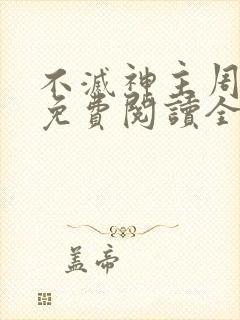 不滅神主周
免費閱讀全
蓋帝